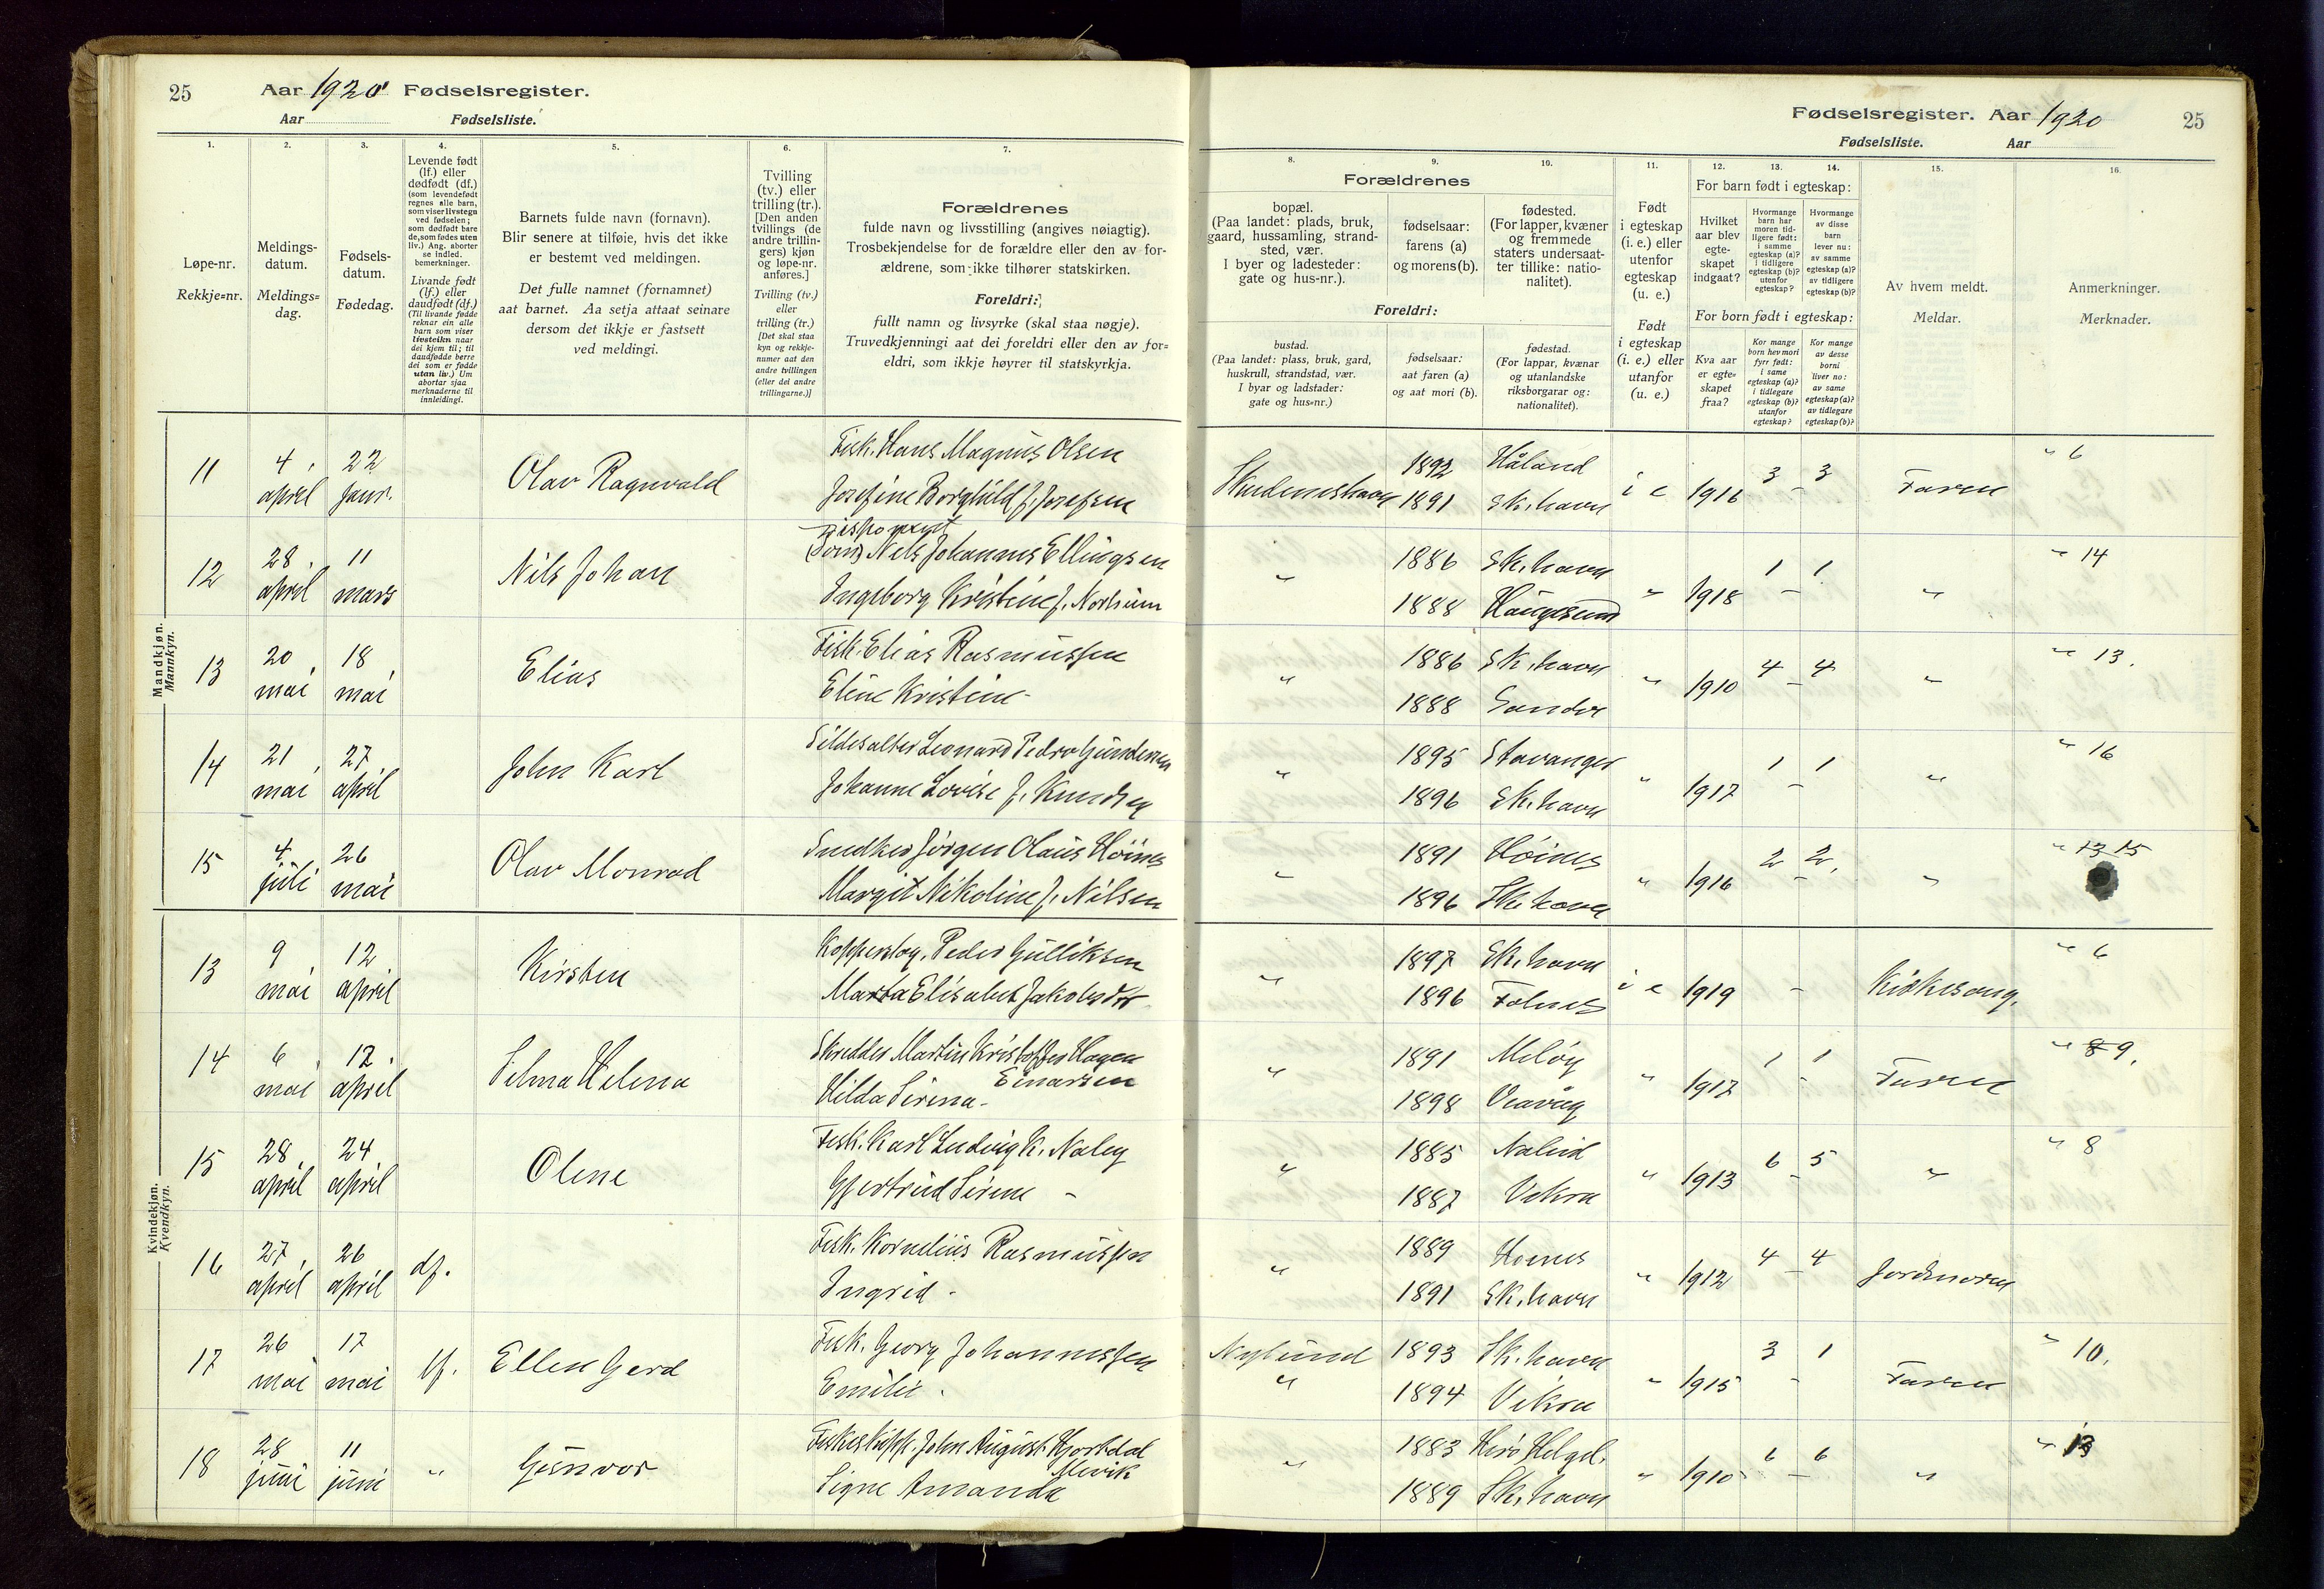 25 Aar 1920 Fødselsregister.
Aar Fødselsliste.
1. 2. 3. 4. 5. 6. 7.
Løpe-nr.
Rekkje-nr.
Meldings-
datum.
Meldings-
dag.
Fødsels-
datum.
Fødedag.
Levende født
(lf.) eller
dødfødt (df.)
(som levendefødt
regnes alle barn,
som viser livstegn
ved fødselen;
som dødfødt bare
de, som fødes uten
liv.) Ang. aborter
se indled.
bemerkninger.
Livande født
(lf.) eller
daudfødt (df.)
(Til livande fødde
reknar ein alle
barn som viser
livsteikn naar
dei kjem til; til
daudfødde berre
dei som er fødde
utan liv.) Um
abortar sjaa
merknaderne til
innleidingi.
Barnets fulde navn (fornavn).
Blir senere at tilføie, hvis det ikke
er bestemt ved meldingen.
Det fulle namnet (fornamnet)
aat barnet. Aa setja attaat seinare
dersom det ikkje er fastsett
ved meldingi.
Tvilling
(tv.) eller
trilling (tr.).
[Den anden
tvillings (de
andre trillin-
gers) kjøn
og løpe-nr.
anføres.]
Tvilling (tv.)
eller
trilling (tr.)
[Det skal staa
kyn og rekkje-
numer aat den
andre tvillingen
(eller dei andre
trillingarne.)]
Forældrenes
fulde navn og livsstilling (angives nøiagtig).
Trosbekjendelse for de forældre eller den av for-
ældrene, som ikke tilhører statskirken.
Foreldri:
fullt namn og livsyrke (skal staa nøgje).
Truvedkjenningi aat dei foreldri eller den av for-
eldri, som ikkje høyrer til statskyrkja.
Mandkjøn.
Mannkyn.
11 4 april 22 janr. Olav Ragnvald Fisk. Hans Magnus Olsen
Josefine Borghild f. Josefsen
12 28 april 11 mars Nils Johan Nils Johannes Ellingsen
Ingeborg Kristine f. Norheim
13 20 mai 18 mai Elias Fisk. Elias Rasmussen
Eline Kristine
14 21 mai 27 april John Karl Sildesalter Leonard Pedro Gundersen
Johanne Lovise f. Knudsen
15 4 juli 26 mai Olav Monrad Snedker Jørgen Olaus Høines
Margit Nikoline f. Nilsen
Kvindekjøn.
Kvendkyn.
13 9 mai 12 april Kirsten Kopperslag. Peder Gulliksen
Marta Elisabet Jakobsdtr
14 6 mai 12 april Selma Helena Skredder Martin Kristoffer Hagen
Einarsen
Hilda Sirena
15 28 april 24 april Olene Fisk. Karl Ludvig K. Naley
Gjertrud Sirene
16 27 april 26 april df. Fisk. Kornelius Rasmussen
Ingrid
17 26 mai 17 mai lf. Ellen Gerd Fisk. Georg Johannessen
Emilie
18 28 juni 11 juni " Gunvor Fiskeskipp. John August Hjortdal
Mevik
Signe Amanda
Fødselsregister. Aar 1920 25
Fødselsliste. Aar
8. 9. 10. 11. 12. 13. 14. 15. 16.
Forældrenes
bopæl.
(Paa landet: plads, bruk,
gaard, hussamling, strand-
sted, vær.
I byer og ladesteder:
gate og hus-nr.).
fødselsaar:
farens (a)
og morens (b).
fødested.
(For lapper, kvæner
og fremmede
staters undersaat-
ter tillike: natio-
nalitet).
Foreldri:
bustad.
(Paa landet: plass, bruk, gard,
huskrull, strandstad, vær.
I byar og ladstader:
gate og hus-nr.)
fødselsaar:
aat faren (a)
og aat mori (b).
fødestad.
(For lappar, kvænar
og utanlandske
riksborgarar og:
nationalitet).
Født
i egteskap
(i. e.) eller
utenfor
egteskap
(u. e.)
Født
i egteskap
(i. e.) eller
utanfor
(u. e.)
For barn født i egteskap:
Hvilket
aar blev
egte-
skapet
indgaat?
Hvormange
barn har
moren tid-
ligere født:
i samme
egteskap (a)?
i tidligere
egteskap (b)?
utenfor
egteskap?
Hvormange
av disse
barn
lever nu:
av samme
egteskap (a)?
av tidligere
egteskap (b)?
For born født i egteskap:
Kva aar
er egte-
skapet
fraa?
Kor mange
born hev mori
fyrr født:
i same
egteskap (a)?
i tidlegare
egteskap (b)?
utanfor
egteskap?
Kor mange
av desse
borni
liver no:
av same
egteskap (a)?
av tidlegare
egteskap (b)?
Av hvem meldt.
Meldar.
Anmerkninger.
Merknader.
Skudeneshavn 1892 Håland i e 1916 3 - 3 Faren " 6
1891 Sk.havn
" 1886 Sk.havn " 1918 1 - 1 " " 14
1888 Haugesund
" 1886 Sk.havn " 1910 4 - 4 " " 13.
1888 Sandø
" 1895 Stavanger " 1917 1 - 1 " " 16
1896 Sk.havn
" 1891 Høines " 1916 2 - 2. " " 13 15
1896 Sk.havn
" 1897 Sk.havn i e 1919 - Kirkesang. " 6
1896 Falnes
" 1891 Meløy " 1917 1 - 1 Faren " 8 9.
1898 Veavåg
" 1885 " 1913 6 - 5 " " 8
1887 Vikra
" 1889 Høines " 1912 4 - 4 Jordmoren
1891 Sk.havn
Nylund 1893 Sk.havn " 1915 3 - 1 Faren " 10.
" 1894 Vikra
" 1883 Herø Helgel. " 1910 6 - 6 " " 13
1889 Sk.havn